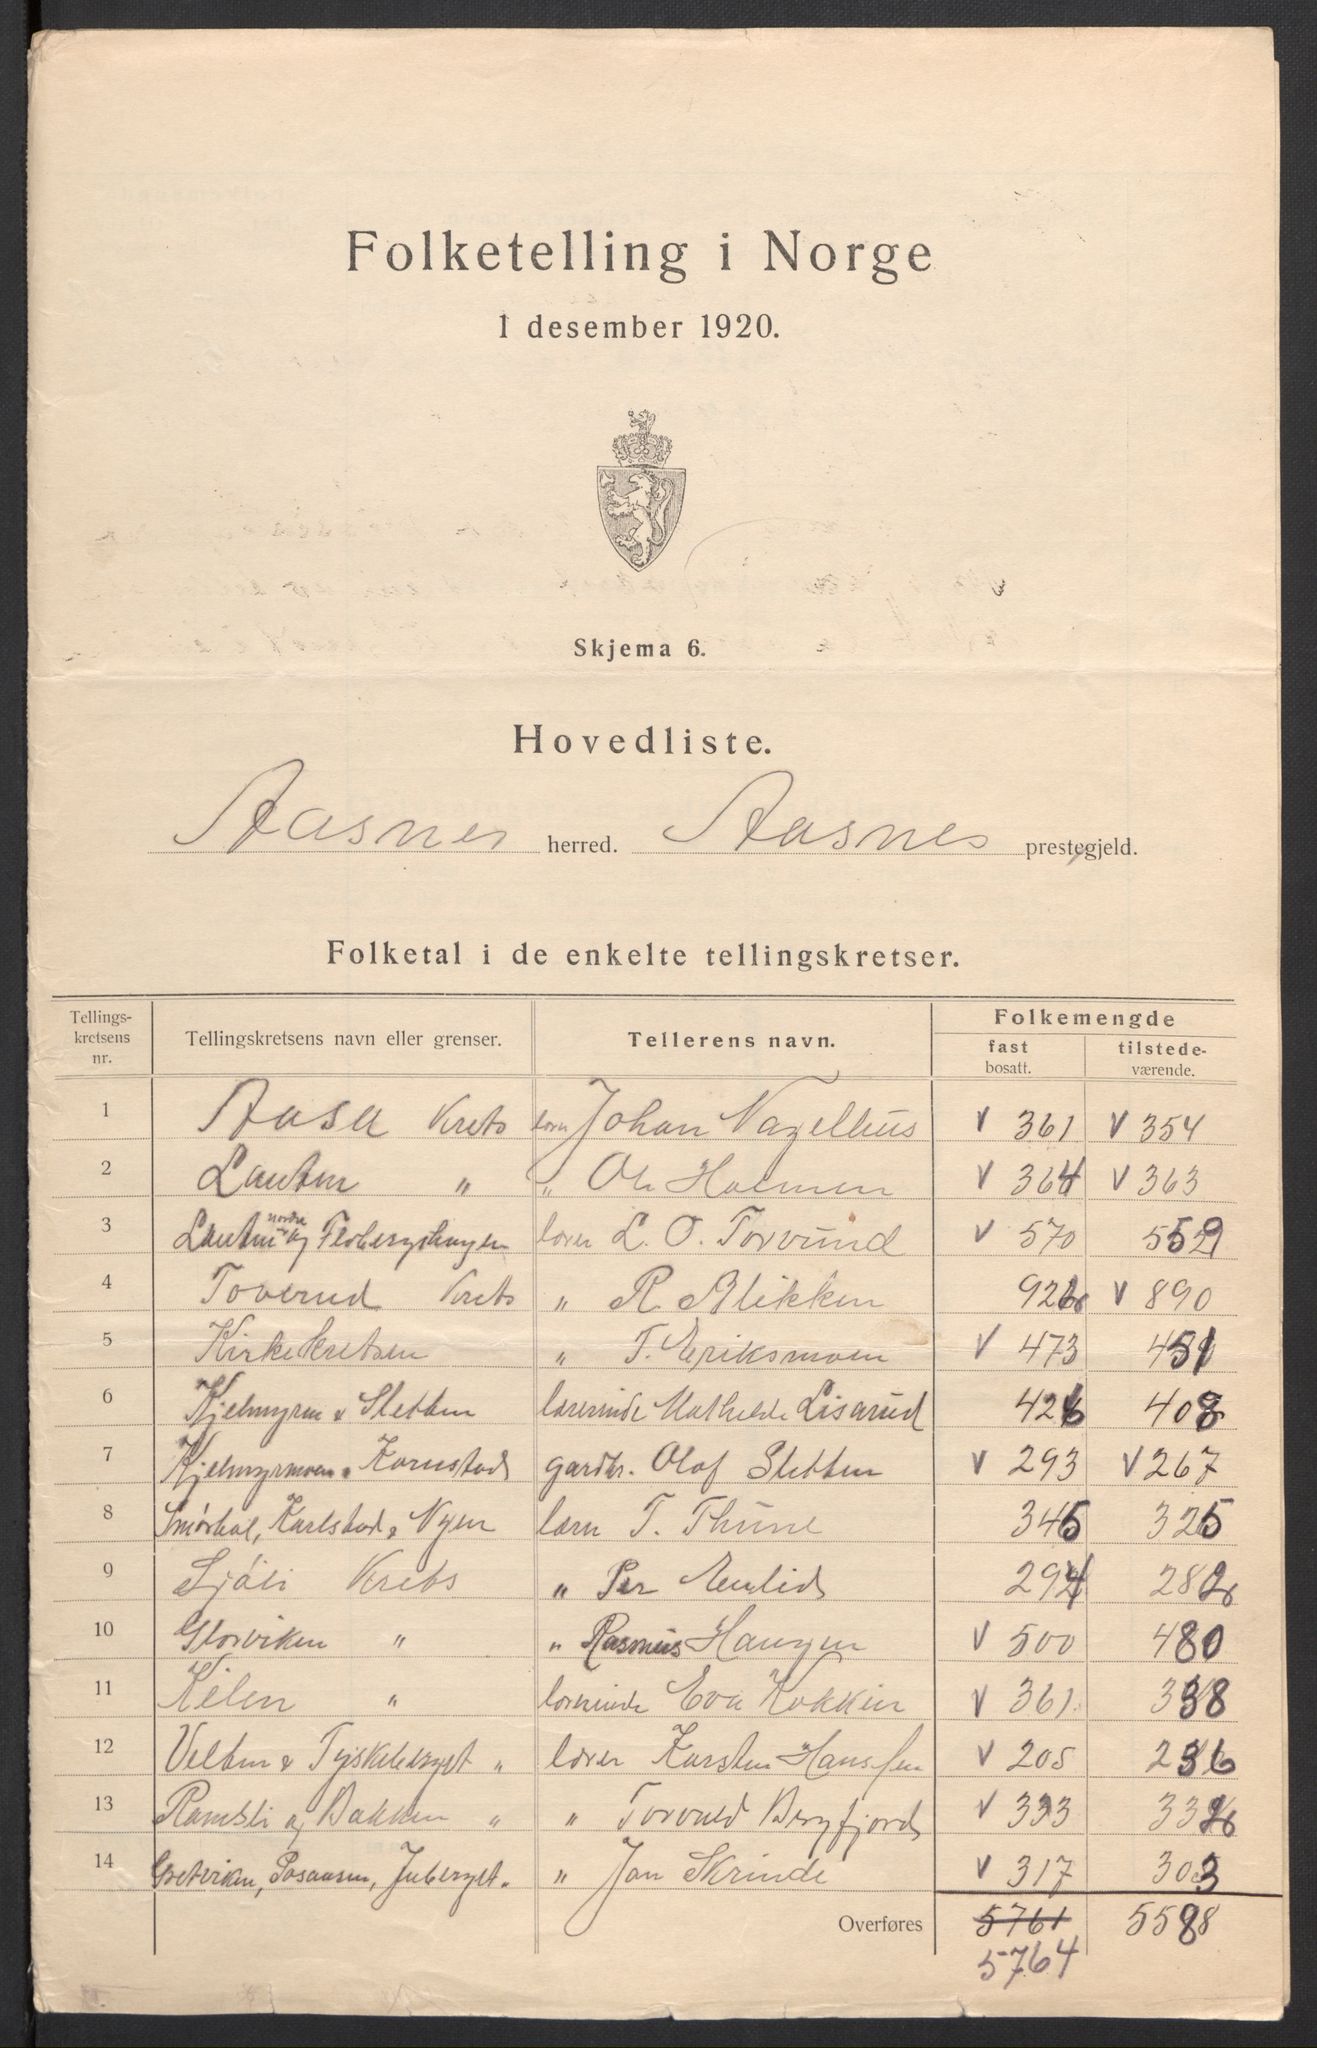 Folketelling i Norge
1 desember 1920.
Skjema 6.
Hovedliste.
Aasnes herred. Aasnes prestegjeld.
Folketal i de enkelte tellingskretser.
Tellings-
kretsens
nr.
Tellingskretsens navn eller grenser.
Tellerens navn.
Folkemengde
fast
bosatt.
tilstede-
værende.
1 Aasa Krets Johan Nagelhus v 361 v 354
2 Lauten " " Ole Holmen v 364 v 363
3 Lauten nordre og Flobergshagen lærer L. O. Torvund v 570 559
4 Toverud Krets " R. Blikken 922 v 890
5 Kirkekretsen " T. Eriksmoen v 473 451
6 Kjelmyren & Sletten lærerinde Mathilde Lisarud 426 408
7 Kjelmyrmoen & Kornstad gardbr. Olof Sletten v 293 v 267
8 Smørhol, Karlstad & Nyen lærer T. Thune 345 325
9 Sjøli Krets " Per 294 282
10 Glorviken " " Rasmus Haugen v 500 480
11 Kilen " lærerinde Eva Kokkin v 361 338
12 Velten & Tyskeberget " lærer Karsten Hanssen v 205 236
13 Ramsli og Bakken " " Torvald Bergfjord v 333 332
14 Gretviken, Posaasen, Juberget " " Jon Skrinde v 317 303
Overføres 5761 5588
5764